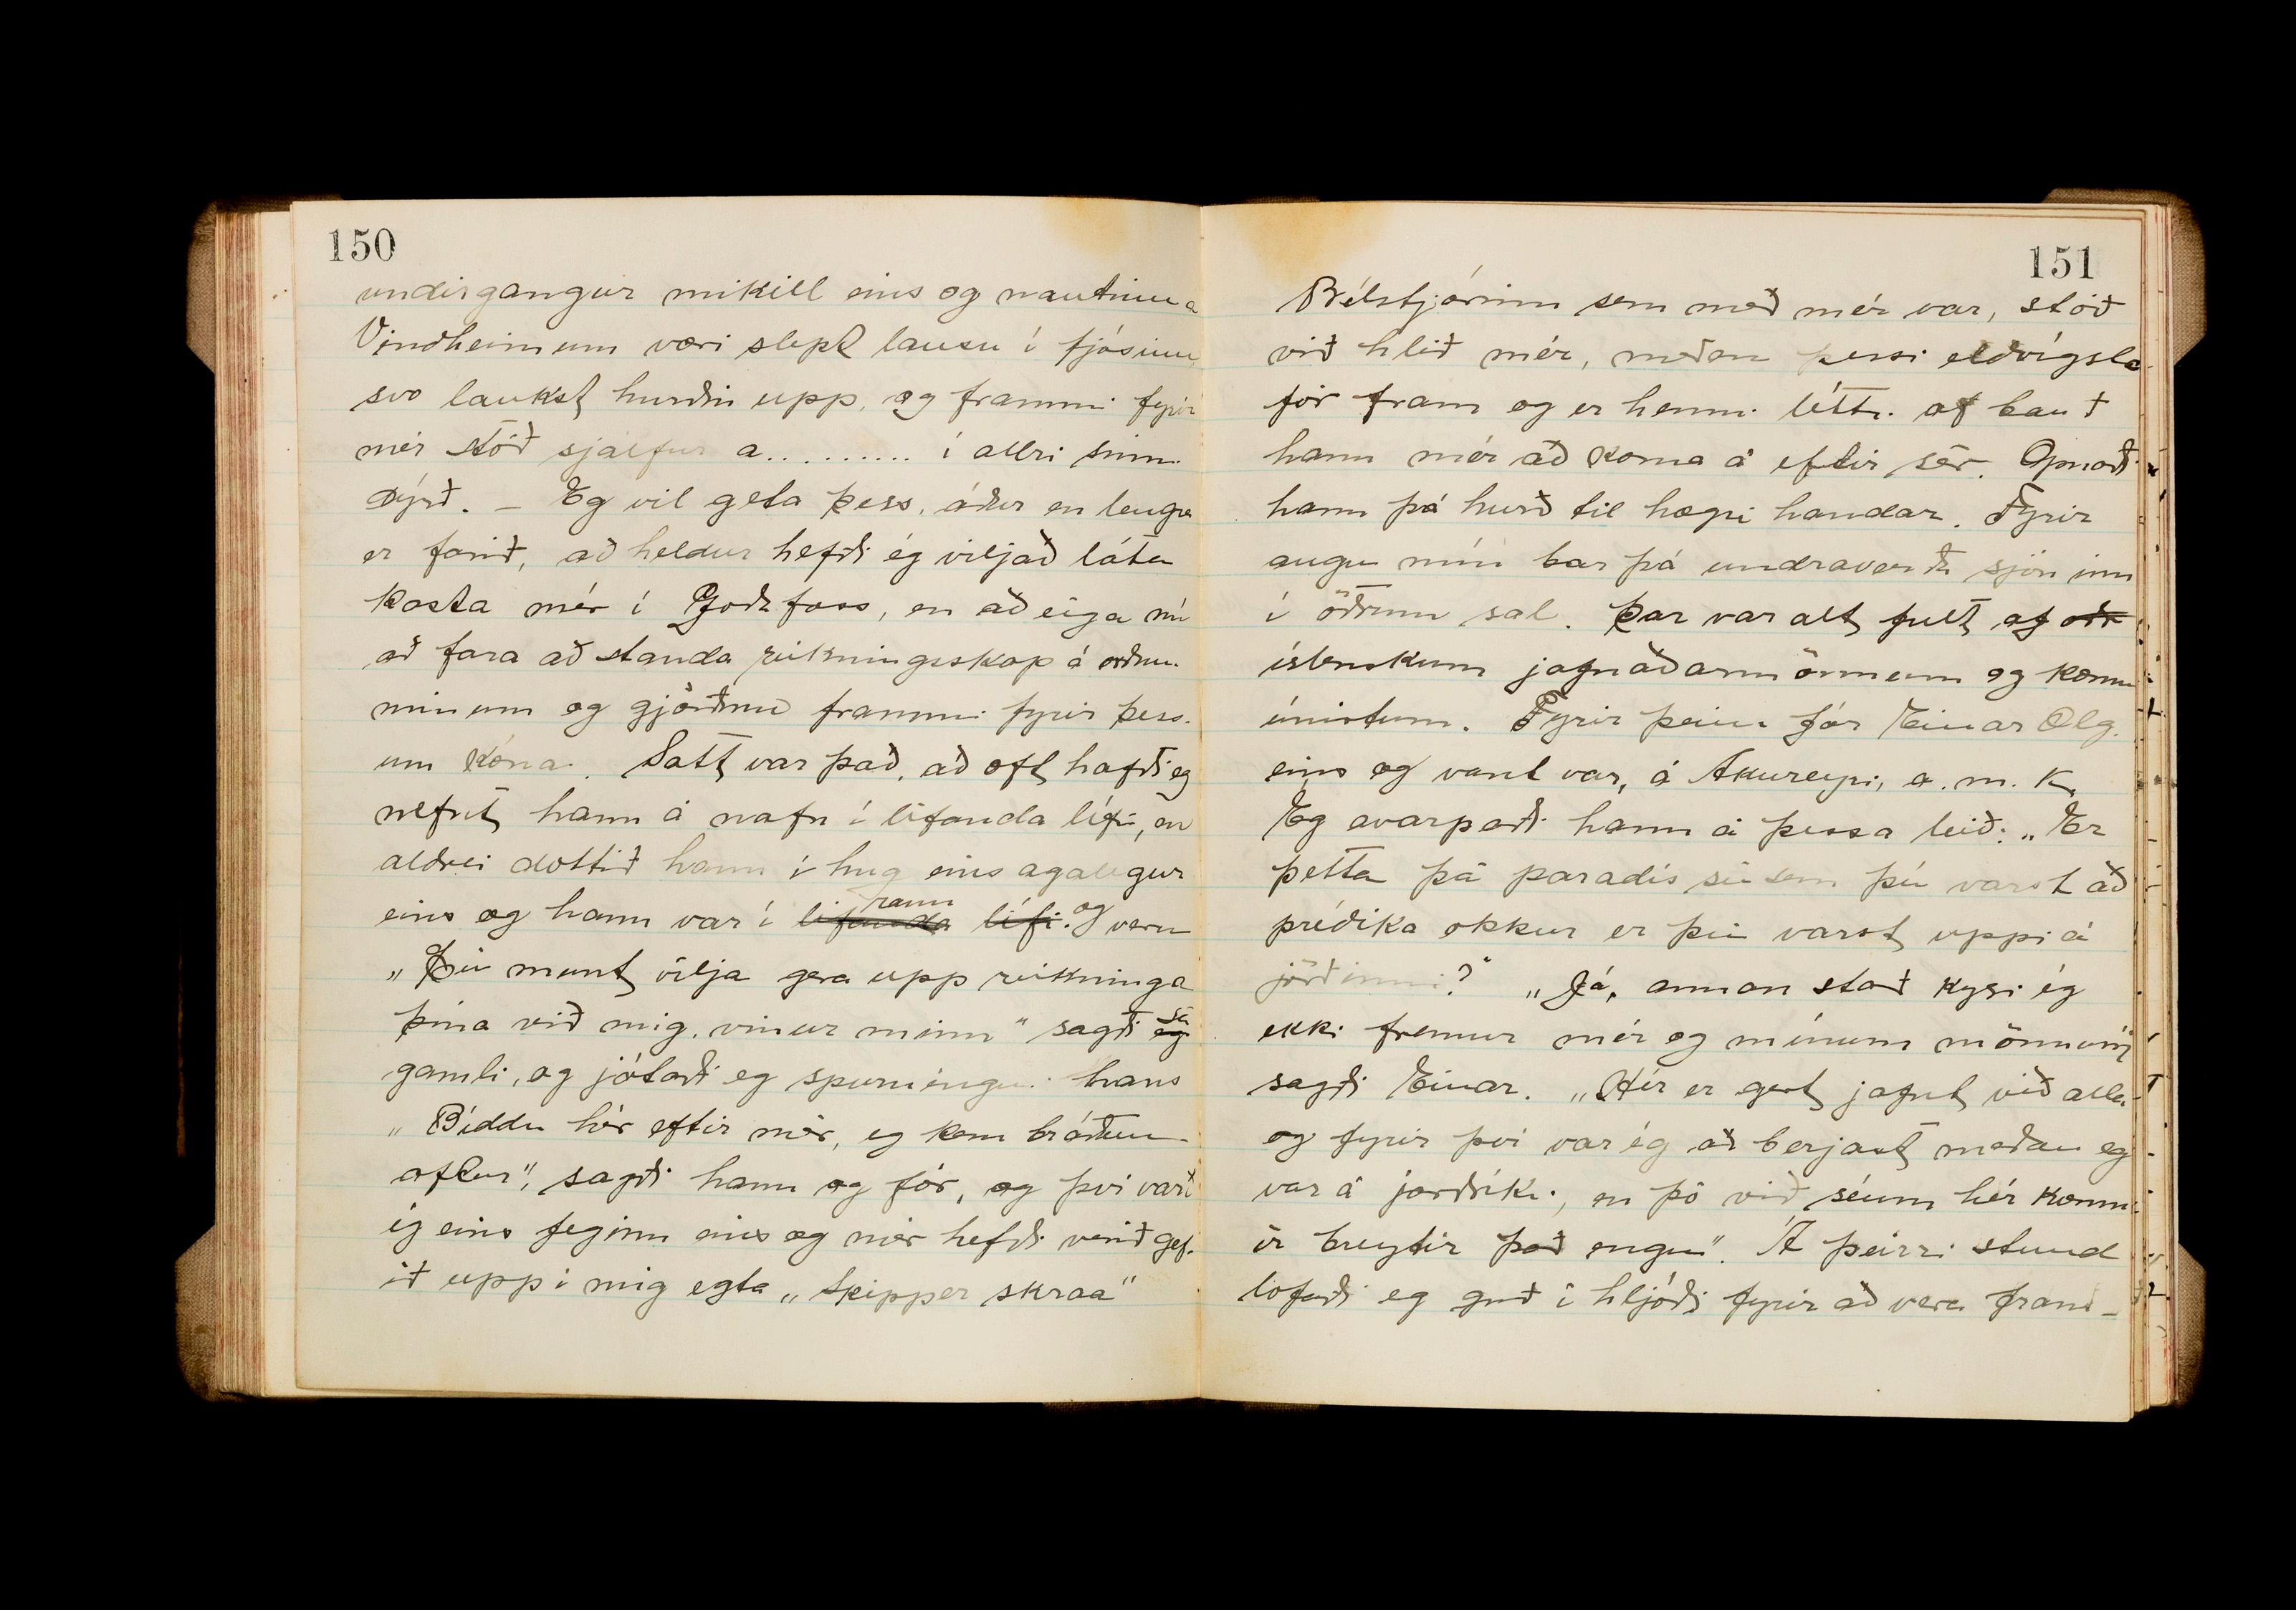 150
undirgangur mikill eins og nautinu á
Vindheimum væri slept lausu í fjósinu,
svo laukst hurðin upp, og frammi fyrir
mér stóð sjálfur a.......... í allri sinni
dýrð. - Eg vil geta þess, áður en lengra
er farið, að heldur hefði ég viljað láta
kasta mér í Goðafoss, en að eiga nú
að fara að standa reikningsskap á orðum
mínum og gjörðum frammi fyrir þess-
um kóna. Satt var það, að oft hafði eg
nefnt hann á nafn í lifanda lífi, en
aldrei dottið hann í hug eins agalegur
eins og hann var í lifanda lífi. raun og veru
„Þú munt vilja gera upp reikninga
þína við mig, vinur minn" sagði eg sá
gamli, og játaði eg spurningu hans
„Bíddu hér eftir mér, eg kem bráðum
aftur", sagði hann og fór, og því varð
ég eins feginn eins og mér hefði verið gef-
ið upp í mig egta „Skipper skraa"
151
Bílstjórinn sem með mér var, stóð
við hlið mér, meðan þessi eldvígsla
fór fram og er henni létti af bauð
hann mér að koma á eftir sér. Opnaði
hann þá hurð til hægri handar. Fyrir
augu mín bar þá undraverða sjón inn
í öðrum sal. Þar var alt fult af öðr
íslenskum jafnaðarmönnum og komm-
únistum. Fyrir þeim fór Einar Olg.
eins og vant var, á Akureyri, a.m.k.
Ég ávarpaði hann á þessa leið: „Er
þetta þá paradís sú sem þú varst að
prédika okkur er þú varst uppi á
jörðinni?" „Já, annan stað kysi ég
ekki fremur mér og mínum mönnum"
sagði Einar. „Hér er gert jafnt við alla
og fyrir því var ég að berjast meðan eg
var á jarðríki, en þó við séum hér komn-
ir breytir það engu". Á þeirri stund
lofaði eg guð í hljóði fyrir að vera fram-